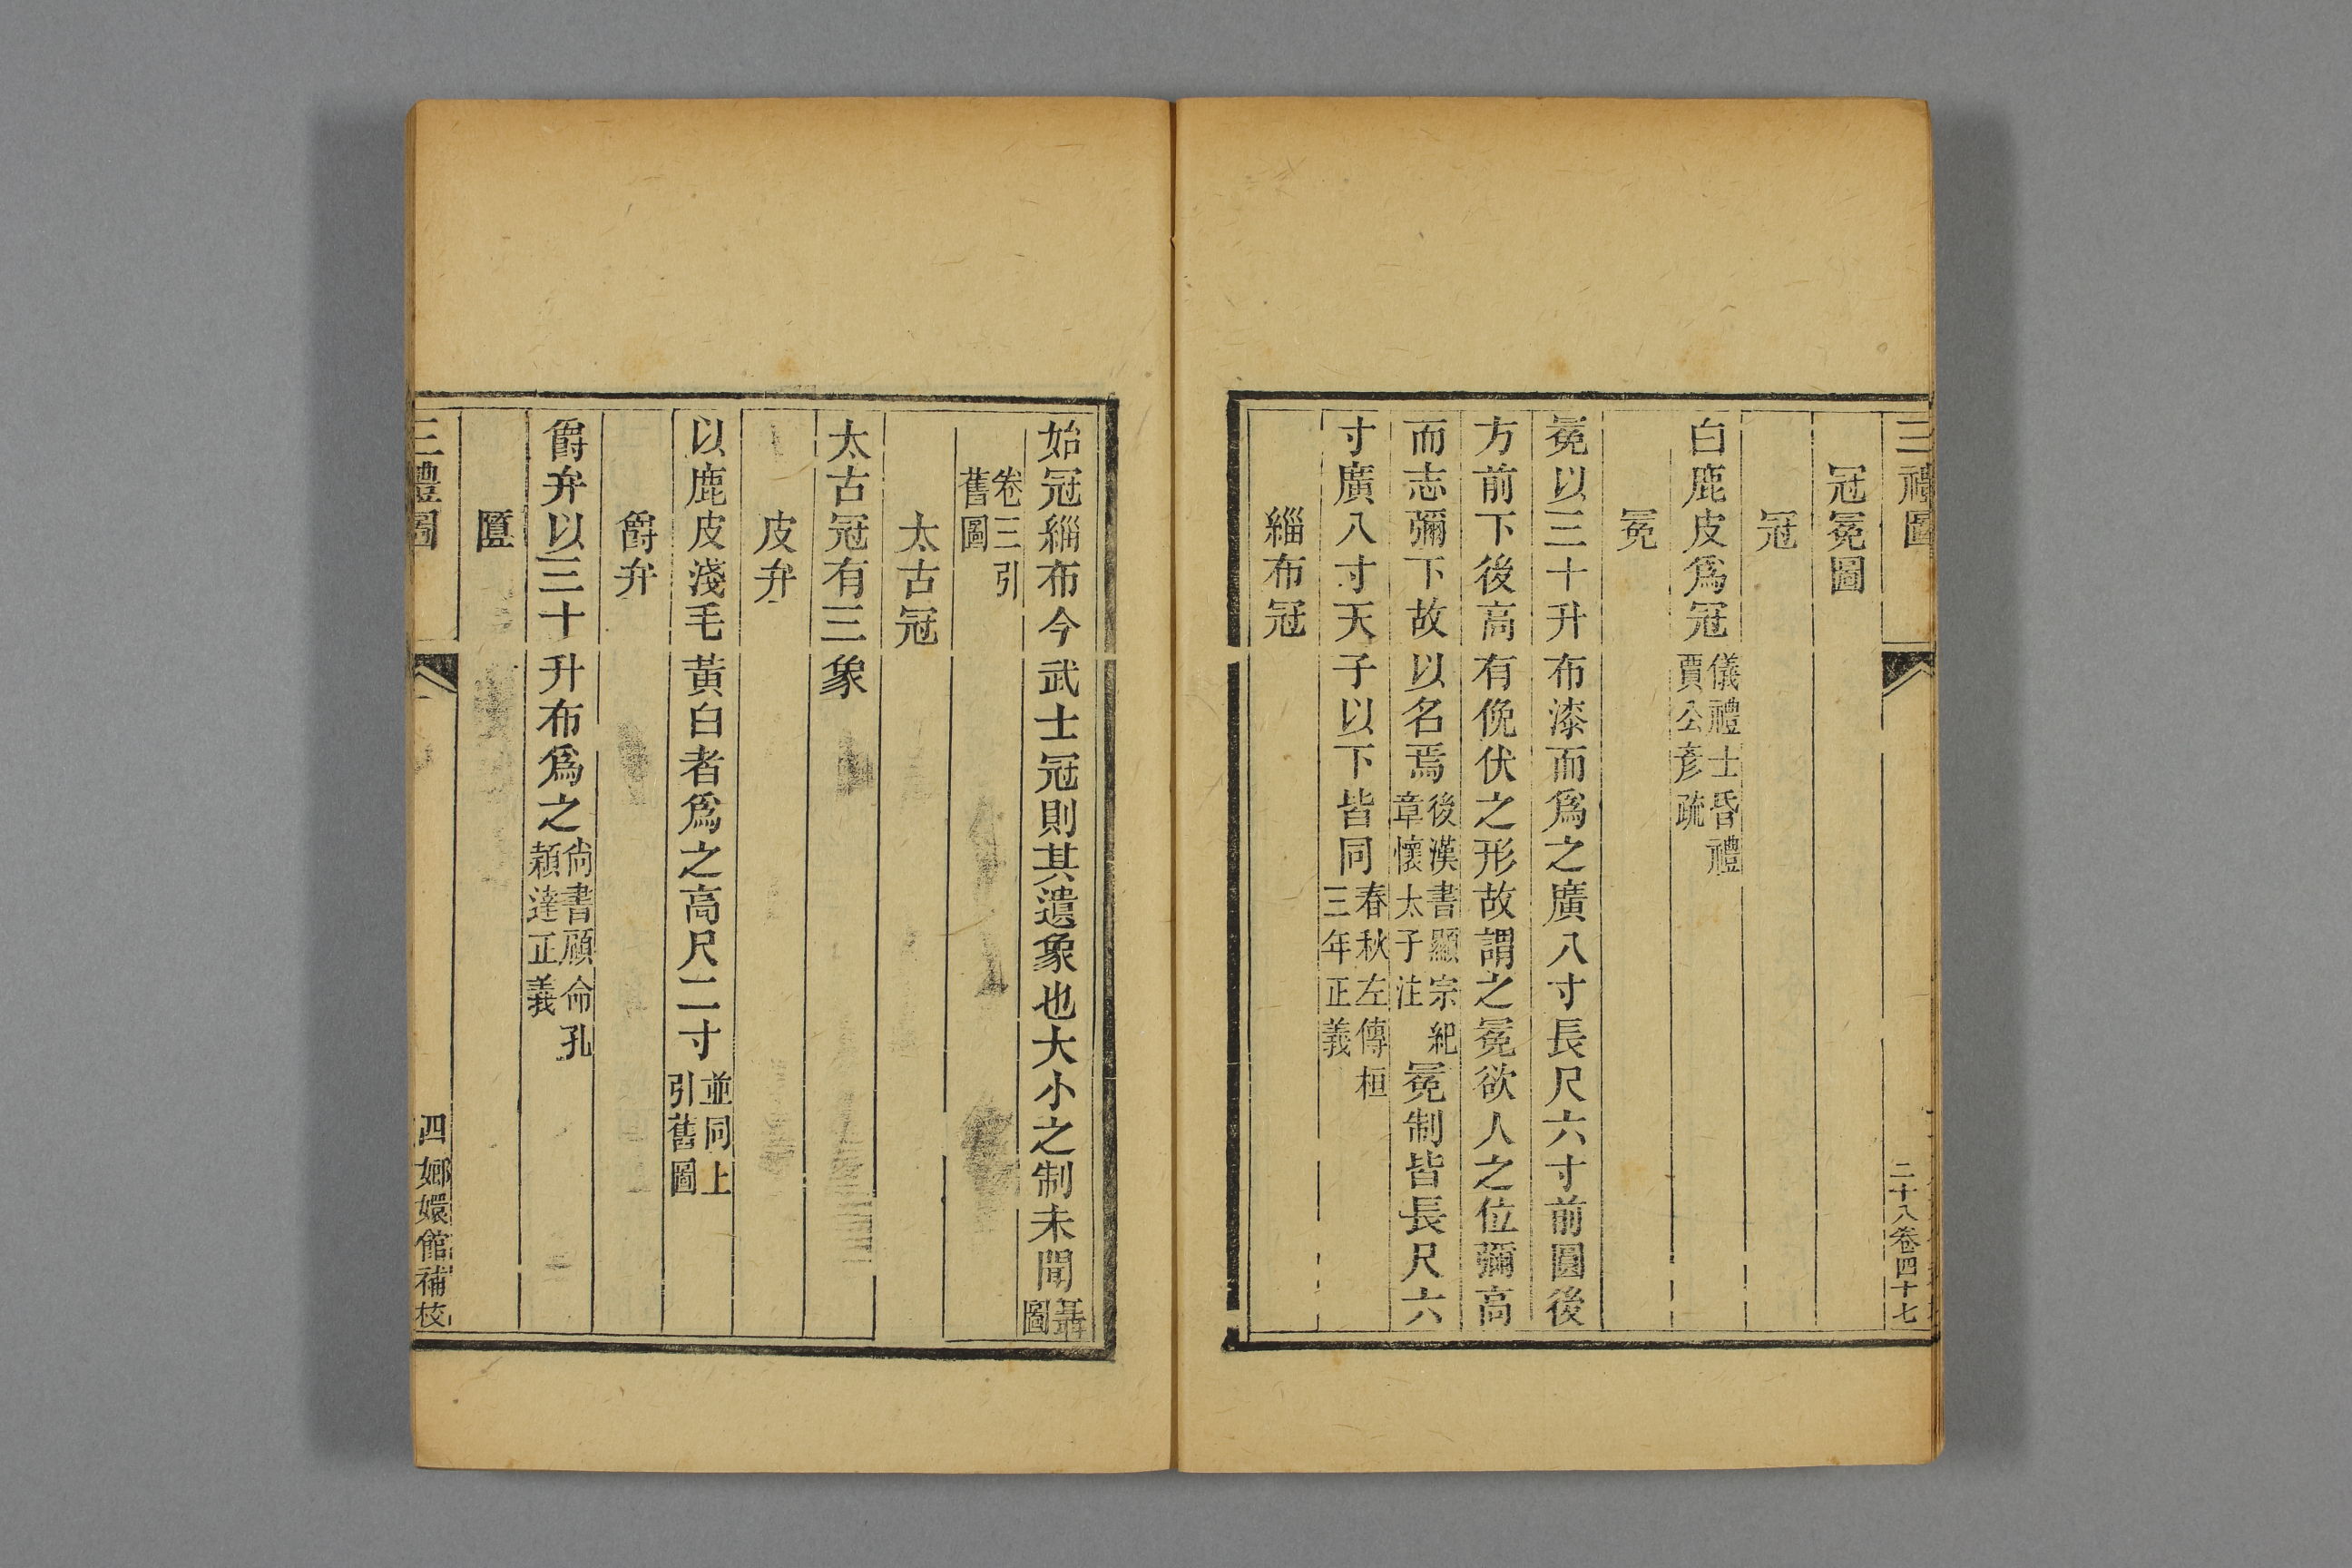 三禮圖
二十八卷四十七
冠冕圖
冠
白鹿皮爲冠儀禮士昏禮賈公彥疏
冕
冕以三十升布漆而爲之廣八寸長尺六寸前圓後
方前下後高有俛伏之形故謂之冕欲人之位彌高
而志彌下故以名焉後漢書顯宗紀章懷太子注冕制皆長尺六
寸廣八寸天子以下皆同春秋左傳桓三年正義
緇布冠
始冠緇布今武士冠則其遺象也大小之制未聞聶圖
卷三引舊圖
太古冠
太古冠有三象
皮弁
以鹿皮淺毛黃白者爲之高尺二寸並同上引舊圖
爵弁
爵弁以三十升布爲之尙書顧命孔穎達正義
匴
三禮圖
四
嫏嬛館補校